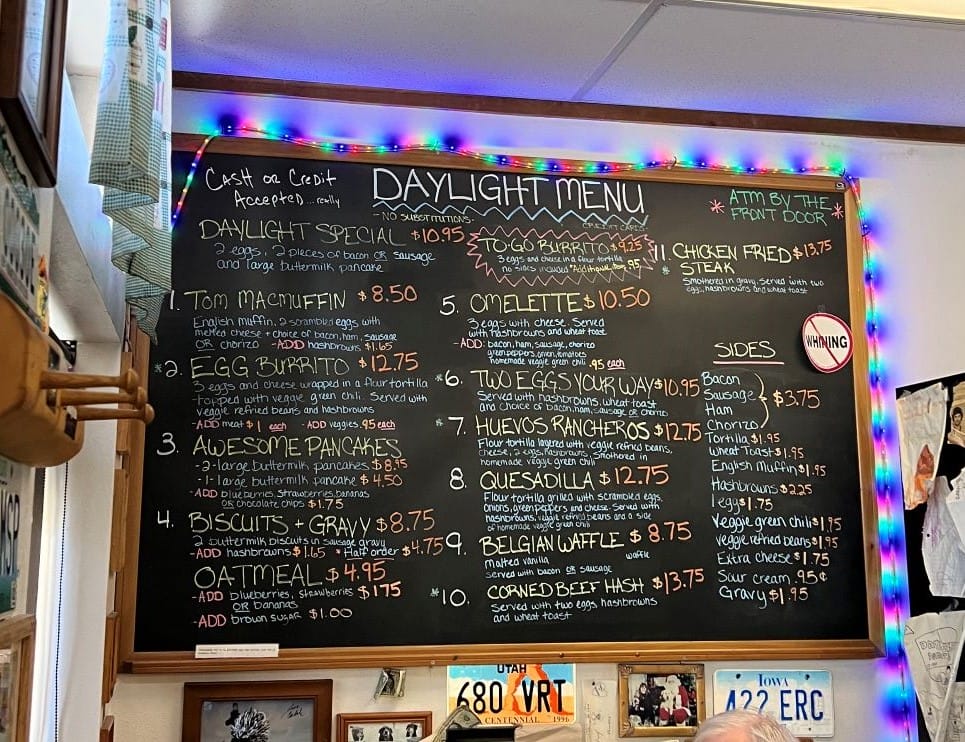 CASH OR CREDIT
Accepted...really
DAYLIGHT MENU
- NO SUBSTITUTIONS-
ATM BY THE
FRONT DOOR
DAYLIGHT SPECIAL $10.95
2 eggs, 2 pieces of bacon OR sausage
and large buttermilk pancake
TO-GO BURRITO $9.25
3 eggs and cheese in a flour tortilla
no sides included
.95
11. CHICKEN FRIED $13.75
* STEAK
Smothered in gravy. Served with two
eggs, hashbrowns and wheat toast
1. TOM MACMUFFIN $8.50
English muffin, 2 scrambled eggs with
melted cheese + choice of bacon, ham, sausage
OR chorizo -ADD hashbrowns $1.65
*2. EGG BURRITO $12.75
3 eggs and cheese wrapped in a flour tortilla
topped with veggie green chili. Served with
veggie refried beans and hashbrowns
-ADD meat $1 each -ADD veggies .95 each
3. AWESOME PANCAKES
-2-large buttermilk pancakes $8.95
-1-large buttermilk pancake $4.50
-ADD blueberries, strawberries, bananas
OR chocolate chips $1.75
4. BISCUITS + GRAVY $8.75
2 buttermilk biscuits in sausage gravy
-ADD hashbrowns $1.65 *Half order $4.75
OATMEAL $4.95
-ADD blueberries, strawberries $1.75
OR bananas
-ADD brown sugar $1.00
5. OMELETTE $10.50
3 eggs with cheese. Served
with hashbrowns and wheat toast
-ADD: bacon, ham, sausage, chorizo
green peppers, onion, tomatoes
homemade veggie green chili .95 each
*6. TWO EGGS YOUR WAY $10.95
Served with hashbrowns, wheat toast
and choice of bacon, ham, sausage OR chorizo
*7. HUEVOS RANCHEROS $12.75
Flour tortilla layered with veggie refried beans,
cheese, 2 eggs, hashbrowns, smothered in
homemade veggie green chili
8. QUESADILLA $12.75
Flour tortilla grilled with scrambled eggs,
onions, green peppers and cheese. Served with
hashbrowns, veggie refried beans and a side
of homemade veggie green chili
9. BELGIAN WAFFLE $8.75
malted vanilla waffle
served with bacon OR sausage
*10. CORNED BEEF HASH $13.75
Served with two eggs, hashbrowns
and wheat toast
WHINING
SIDES
Bacon
Sausage
Ham
Chorizo
$3.75
Tortilla $1.95
Wheat Toast $1.95
English Muffin $1.95
Hashbrowns $2.25
1 egg $1.75
Veggie green chili $1.95
veggie refried beans $1.95
Extra Cheese $1.75
Sour cream .95¢
Gravy $1.95
UTAH
680 VRT
CENTENNIAL 1996
IOWA
422 ERC